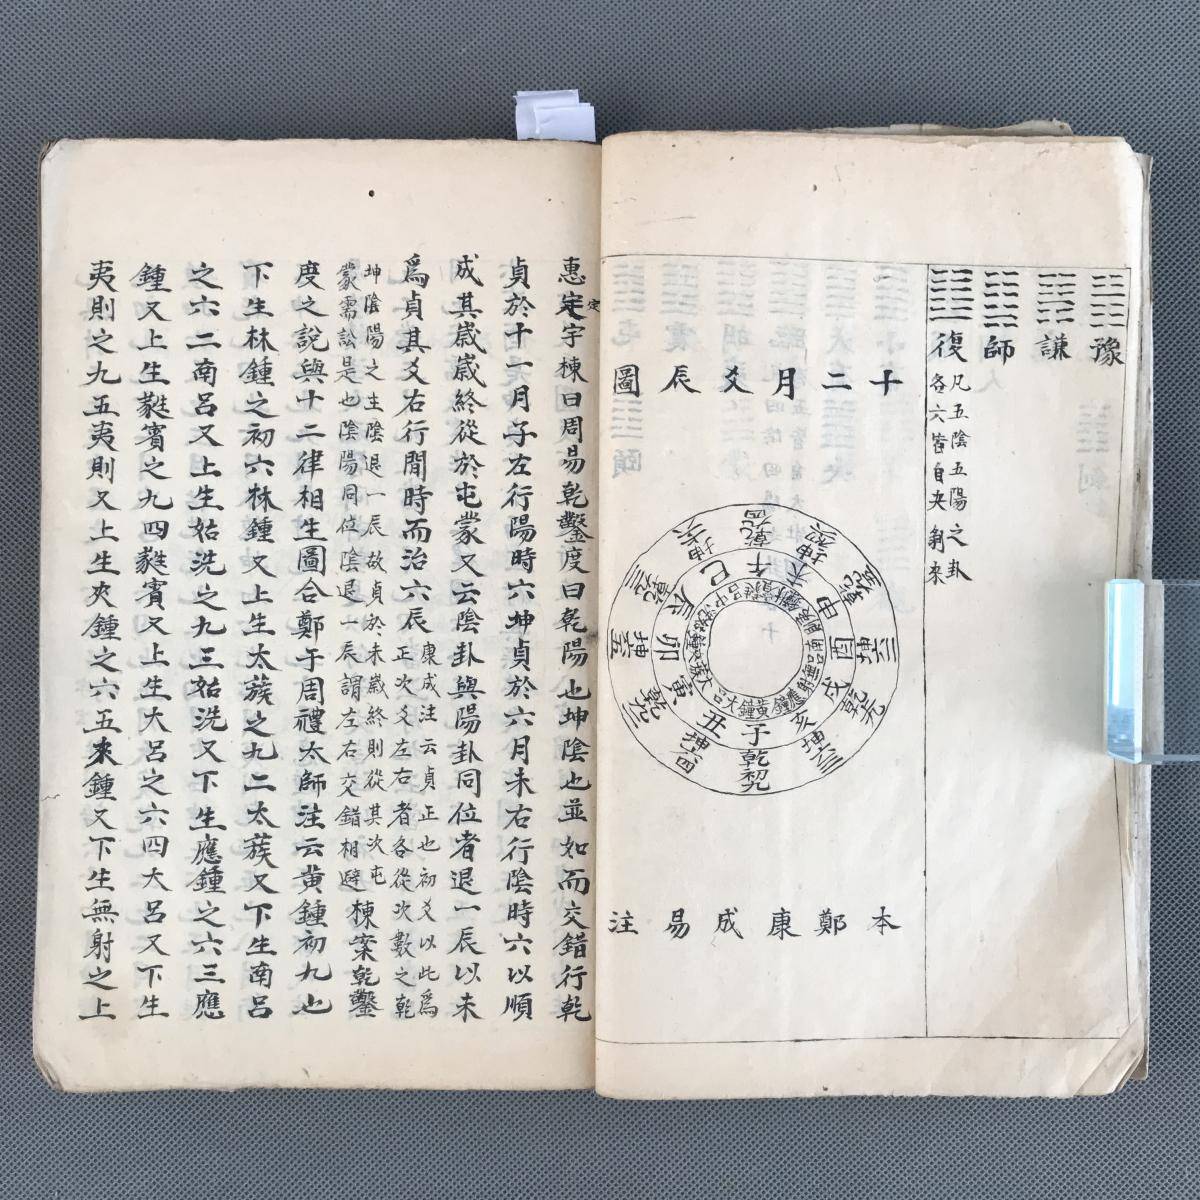 豫
謙
師
復
凡五陰五陽之卦
各六皆自夬剝來
十二月爻辰圖
子
乾初九
黃鐘
丑
坤六四
大呂
寅
卯
辰
巳
午
乾九四
未
申
酉
戌
亥
本鄭康成易注
惠定宇棟曰周易乾鑿度曰乾陽也坤陰也並如而交錯行乾
貞於十一月子左行陽時六坤貞於六月未右行陰時六以順
成其歲歲終從於屯蒙又云陰卦與陽卦同位者退一辰以未
爲貞其爻右行間時而治六辰
康成注云貞正也初爻以此爲
正次爻左右者各從次數之乾
坤陰陽之生陰退一辰故貞於未歲終則從其次屯
蒙需訟是也陰陽同位陰退一辰謂左右交錯相避
棟案乾鑿
度之說與十二律相生圖合鄭于周禮太師注云黃鍾初九也
下生林鍾之初六林鍾又上生太蔟之九二太蔟又下生南呂
之六二南呂又上生姑洗之九三姑洗又下生應鍾之六三應
鍾又上生蕤賓之九四蕤賓又上生大呂之六四大呂又下生
夷則之九五夷則又上生夾鍾之六五夾鍾又下生無射之上